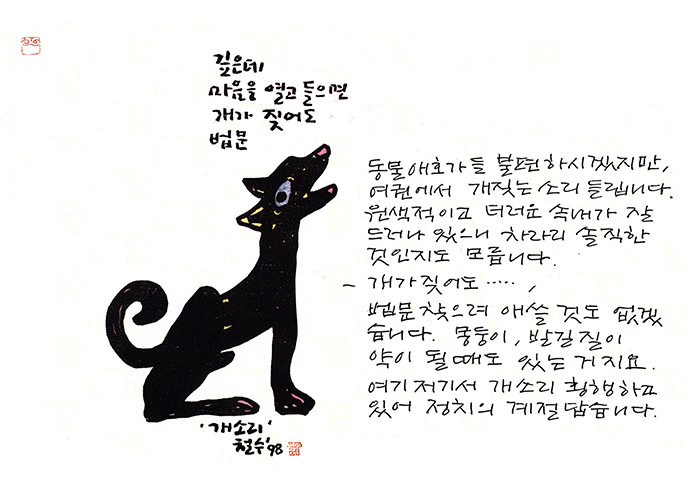 깊은데
마음을 열고 들으면
개가 짖어도
법문
동물애호가들 불편하시겠지만,
여권에서 개짖는 소리 들립니다.
원색적이고 더러운 속내가 잘
드러나 있으니 차라리 솔직한
것인지도 모릅니다.
- 개가짖어도 ····· ,
법문찾으려 애쓸 것도 없겠
습니다. 몽둥이, 발길질이
약이 될때도 있는 거지요.
여기저기서 개소리 횡행하고
있어 정치의 계절답습니다.
'개소리'
철수 '98